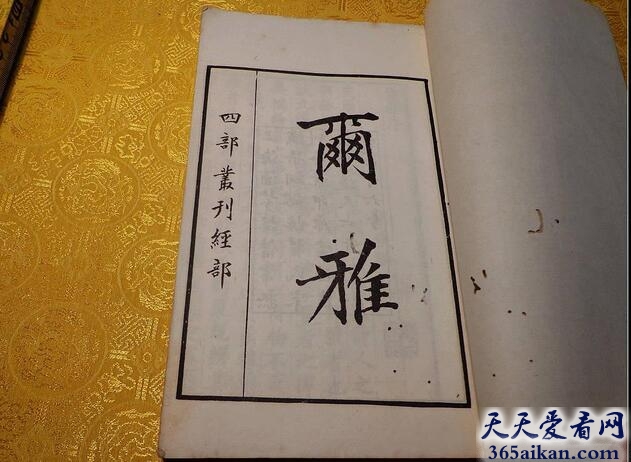 爾雅
四部叢刊經部
天天爱看网
365aikan.com